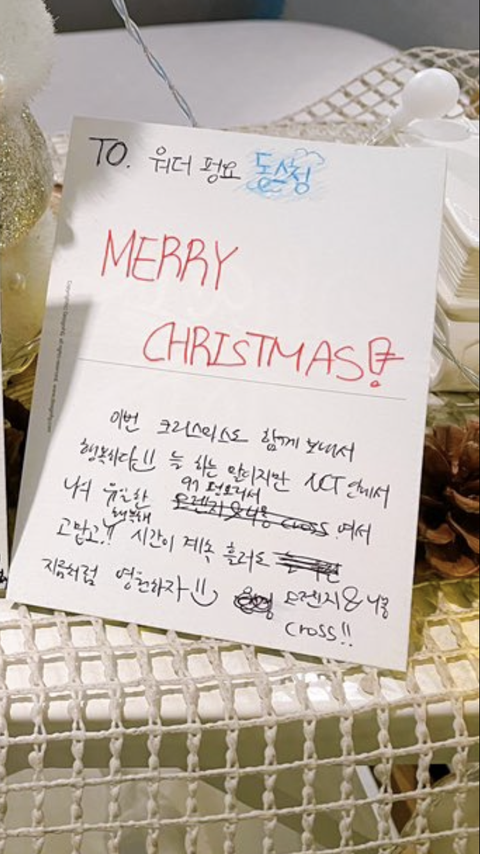 TO. 워더 펑요 동스청
MERRY
CHRISTMAS!
이번 크리스마스도 함께 보내서
행복하다!! 늘 하는 말이지만 NCT 안에서
너의 유일한 97 펑요라서
행복해
오렌지&너풍 cross 여서
고맙고!! 시간이 계속 흘러도
지금처럼 영원하자!!
오렌지&너풍
cross!!